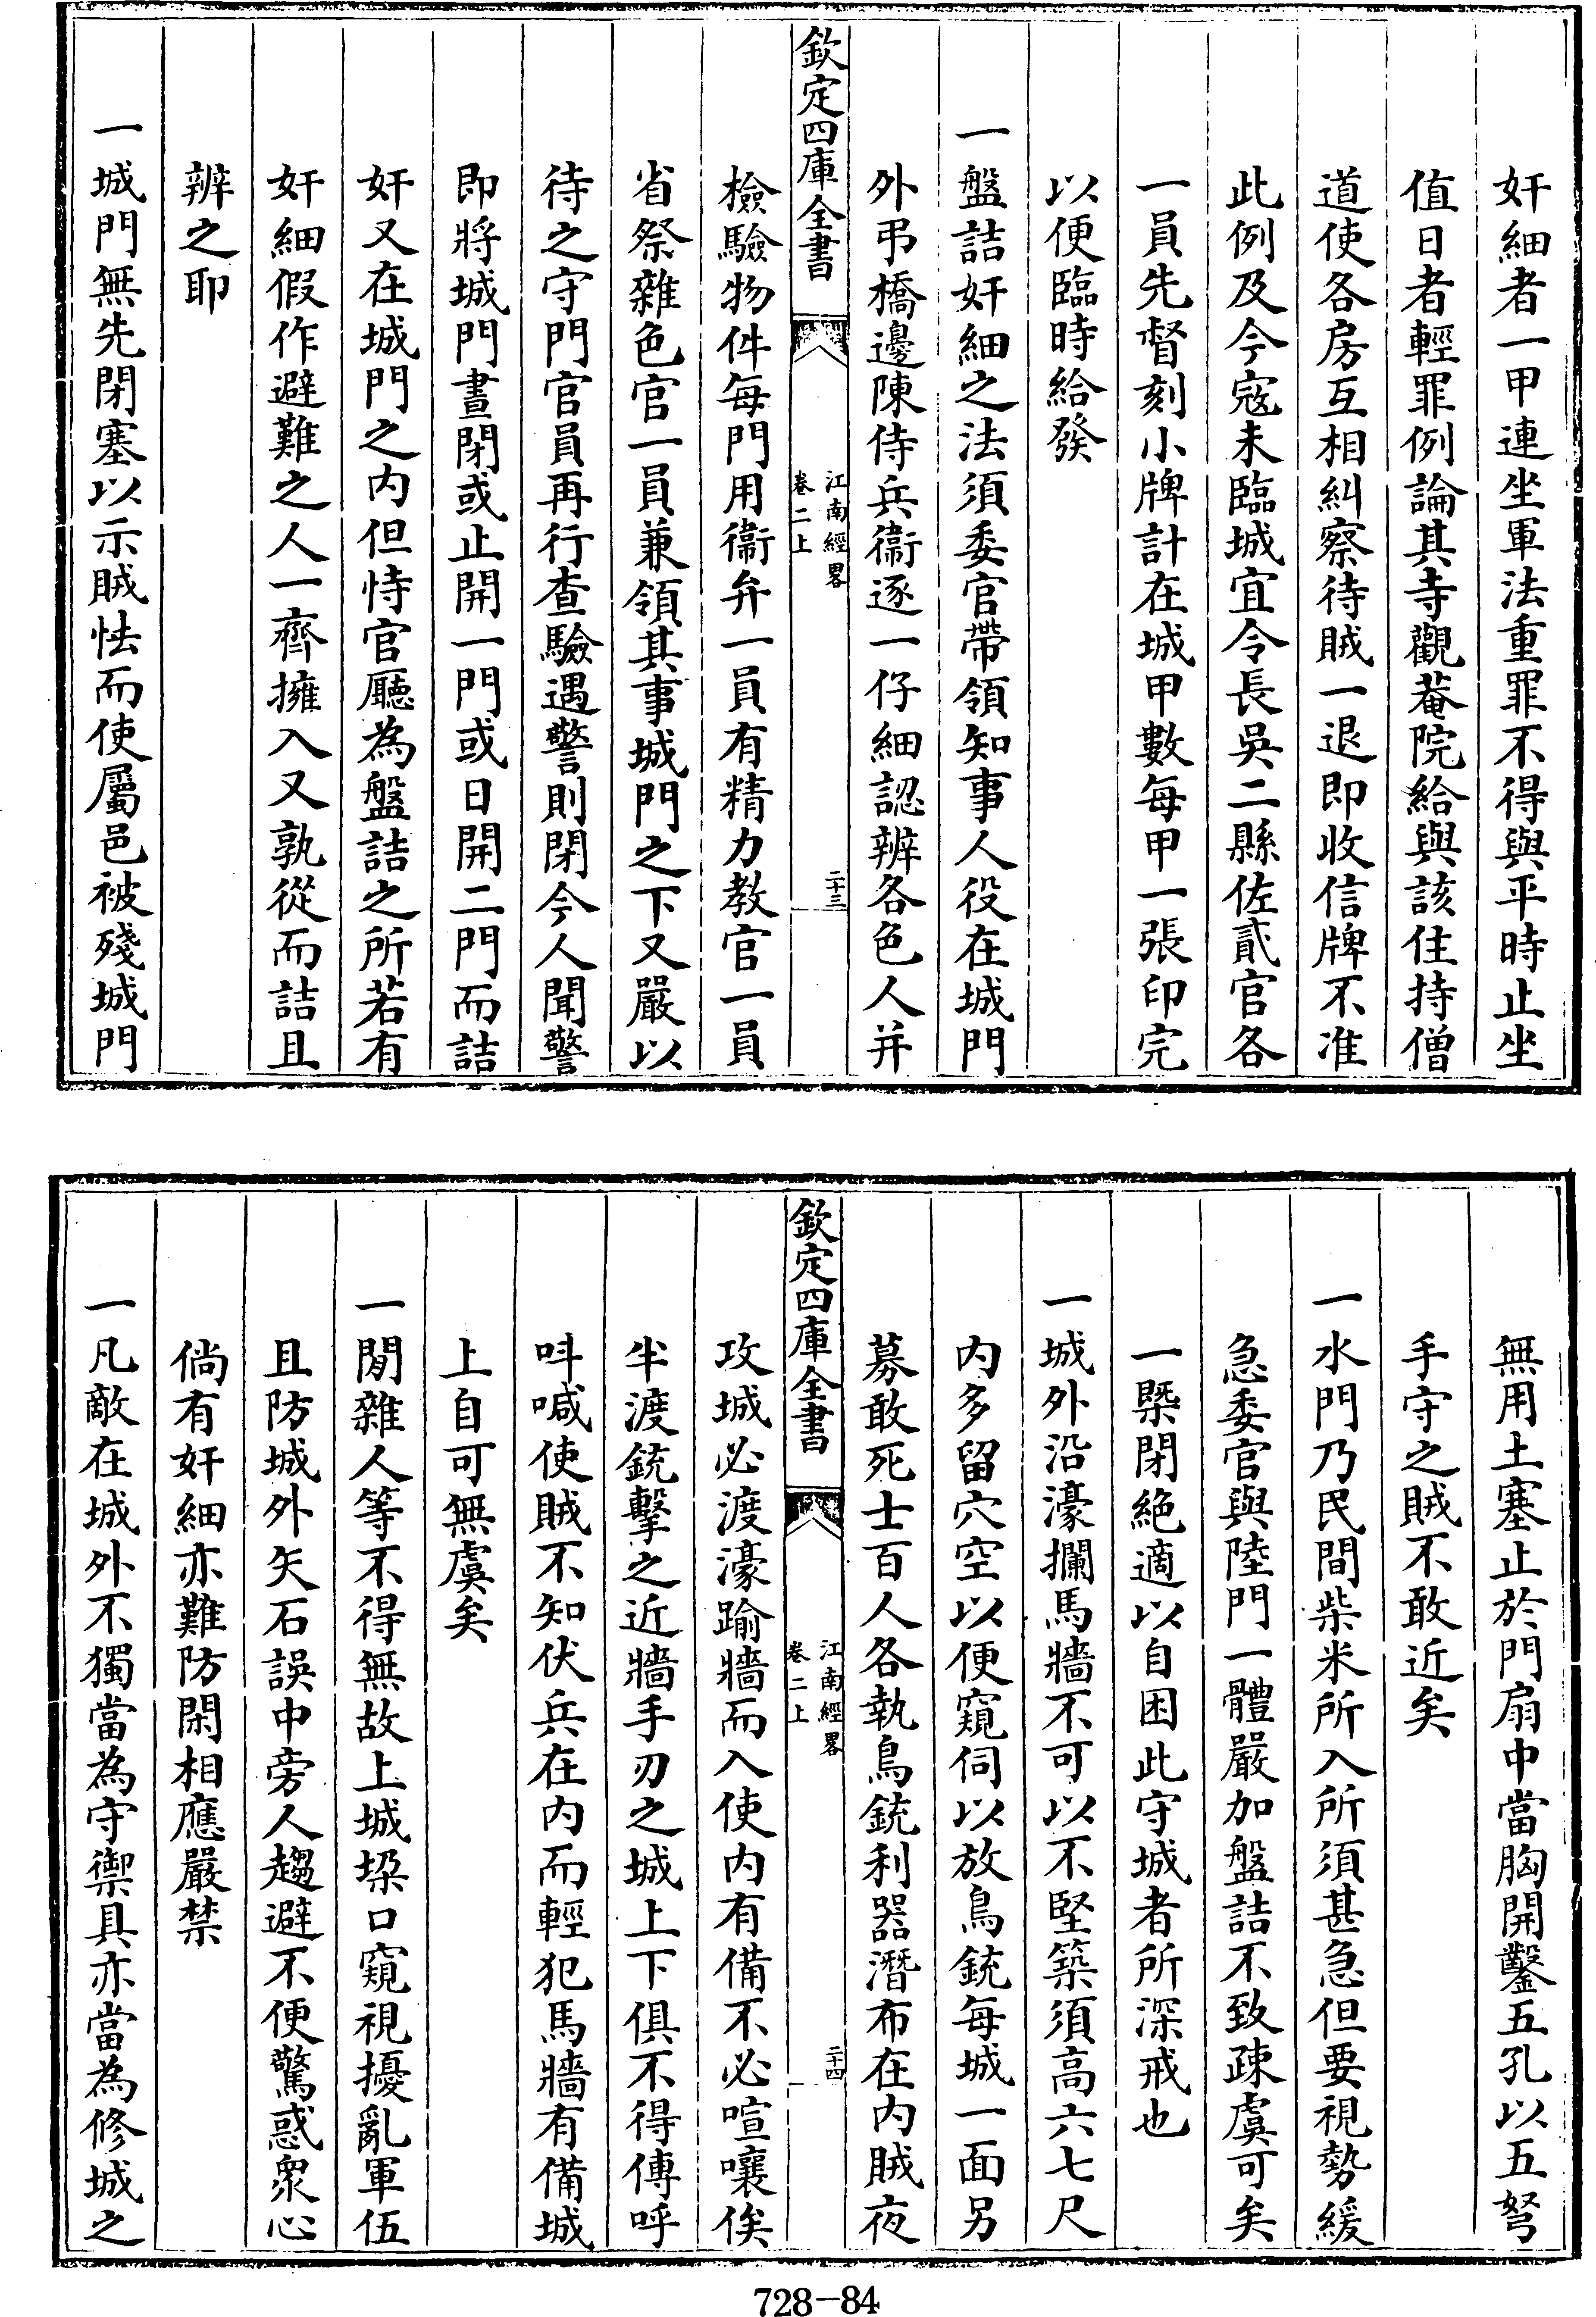 奸細者一甲連坐軍法重罪不得與平時止坐
值日者輕罪例論其寺觀菴院給與該住持僧
道使各房互相糾察待賊一退即收信牌不准
此例及今寇未臨城宜令長吳二縣佐貳官各
一員先督刻小牌計在城甲數每甲一張印完
以便臨時給發
一盤詰奸細之法須委官帶領知事人役在城門
外弔橋邊陳侍兵衞逐一仔細認辨各色人幷
欽定四庫全書
江南經畧
卷二上
二十三
檢驗物件每門用衞弁一員有精力教官一員
省祭雜色官一員兼領其事城門之下又嚴以
待之守門官員再行查驗遇警則閉今人聞警
即將城門晝閉或止開一門或日開二門而詰
奸又在城門之内但恃官廳為盤詰之所若有
奸細假作避難之人一齊擁入又孰從而詰且
辨之耶
一城門無先閉塞以示賊怯而使屬邑被殘城門
無用土塞止於門扇中當胸開鑿五孔以五弩
手守之賊不敢近矣
一水門乃民間柴米所入所須甚急但要視勢緩
急委官與陸門一體嚴加盤詰不致疎虞可矣
一槩閉絕適以自困此守城者所深戒也
一城外沿濠攔馬牆不可以不堅築須高六七尺
内多留穴空以便窺伺以放鳥銃每城一面另
募敢死士百人各執鳥銃利器潛布在内賊夜
欽定四庫全書
江南經畧
卷二上
二十四
攻城必渡濠踰牆而入使内有備不必喧嚷俟
半渡銃擊之近牆手刃之城上下俱不得傳呼
叫喊使賊不知伏兵在内而輕犯馬牆有備城
上自可無虞矣
一閒雜人等不得無故上城垜口窺視擾亂軍伍
且防城外矢石誤中旁人趨避不便驚惑衆心
倘有奸細亦難防閑相應嚴禁
一凡敵在城外不獨當為守禦具亦當為修城之
728-84